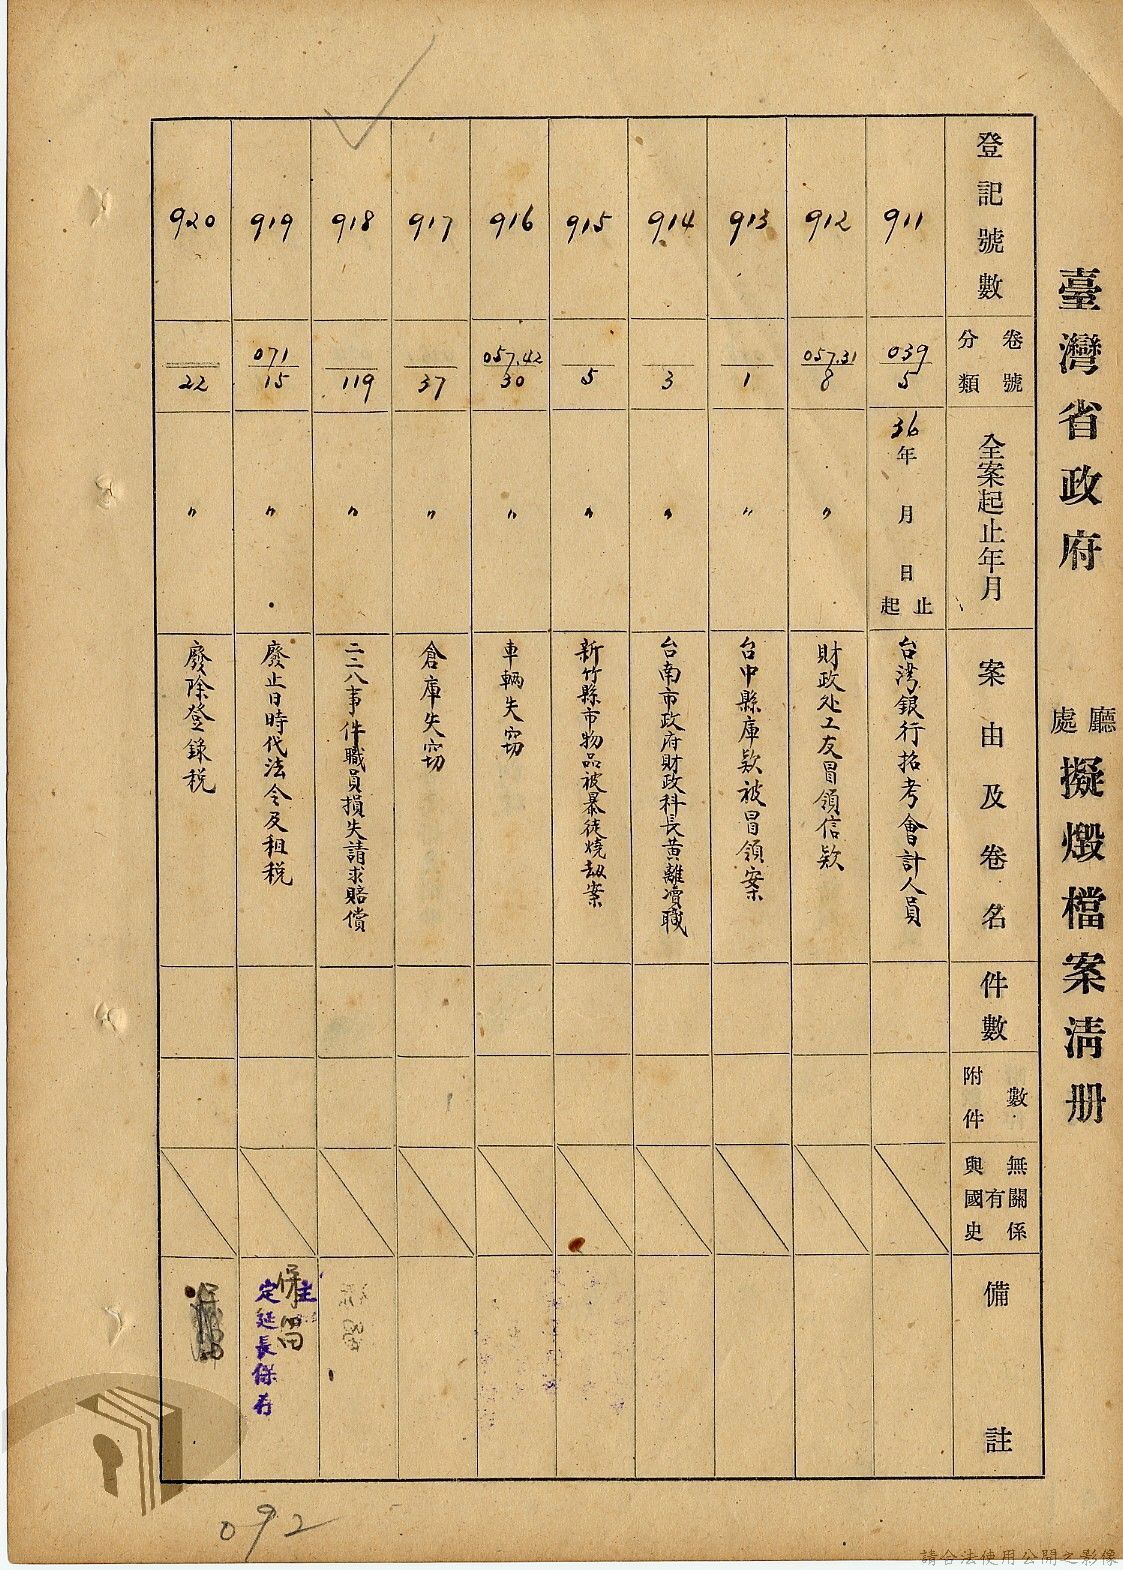 臺灣省政府 廳處 擬燬檔案清册
登記號數
卷號
分類
全案起止年月
案由及卷名
件數
附件數
與國史有無關係
備註
911
039
5
36年 月 日起止
台湾銀行招考會計人員
912
057.31
8
〃
財政处工友冒領信欵
913
1
〃
台中縣庫欵被冒領案
914
3
〃
台南市政府財政科長黃離瀆職
915
5
〃
新竹縣市物品被暴徒燒劫案
916
057.42
30
〃
車輛失窃
917
37
〃
倉庫失窃
918
119
〃
二二八事件職員損失請求賠償
919
071
15
〃
廢止日時代法令及租稅
保留
定延長保存
920
22
〃
廢除登錄稅
092
請合法使用公開之影像